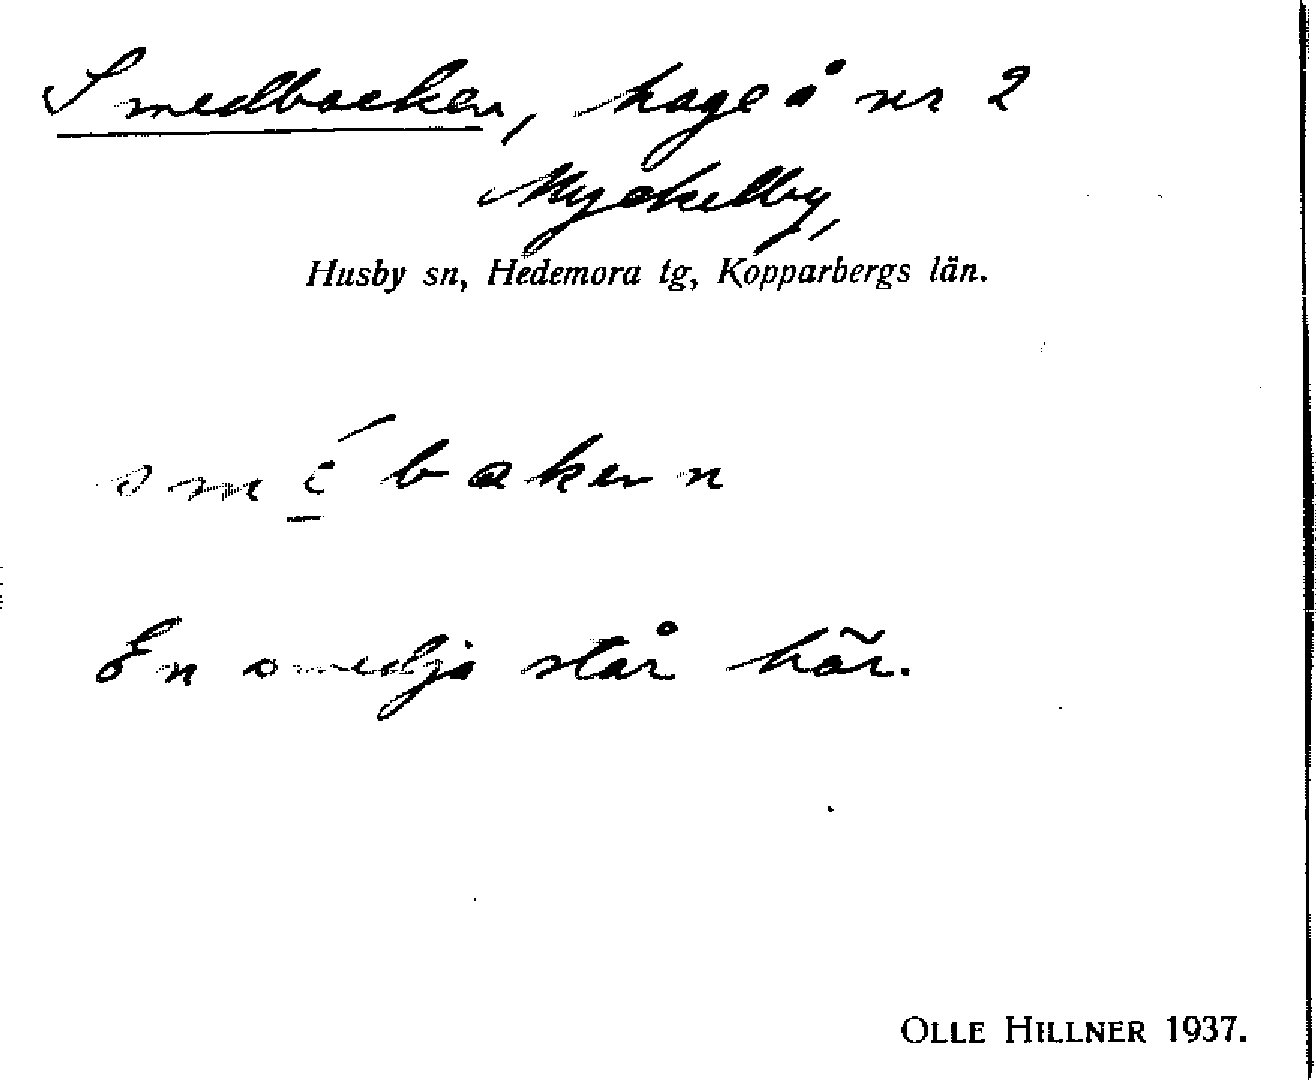 Smedbacken, hage å nr 2
Myckelby,
Husby sn, Hedemora tg, Kopparbergs län.
smé̱bakenn
En smedja står här.
OLLE HILLNER 1937.